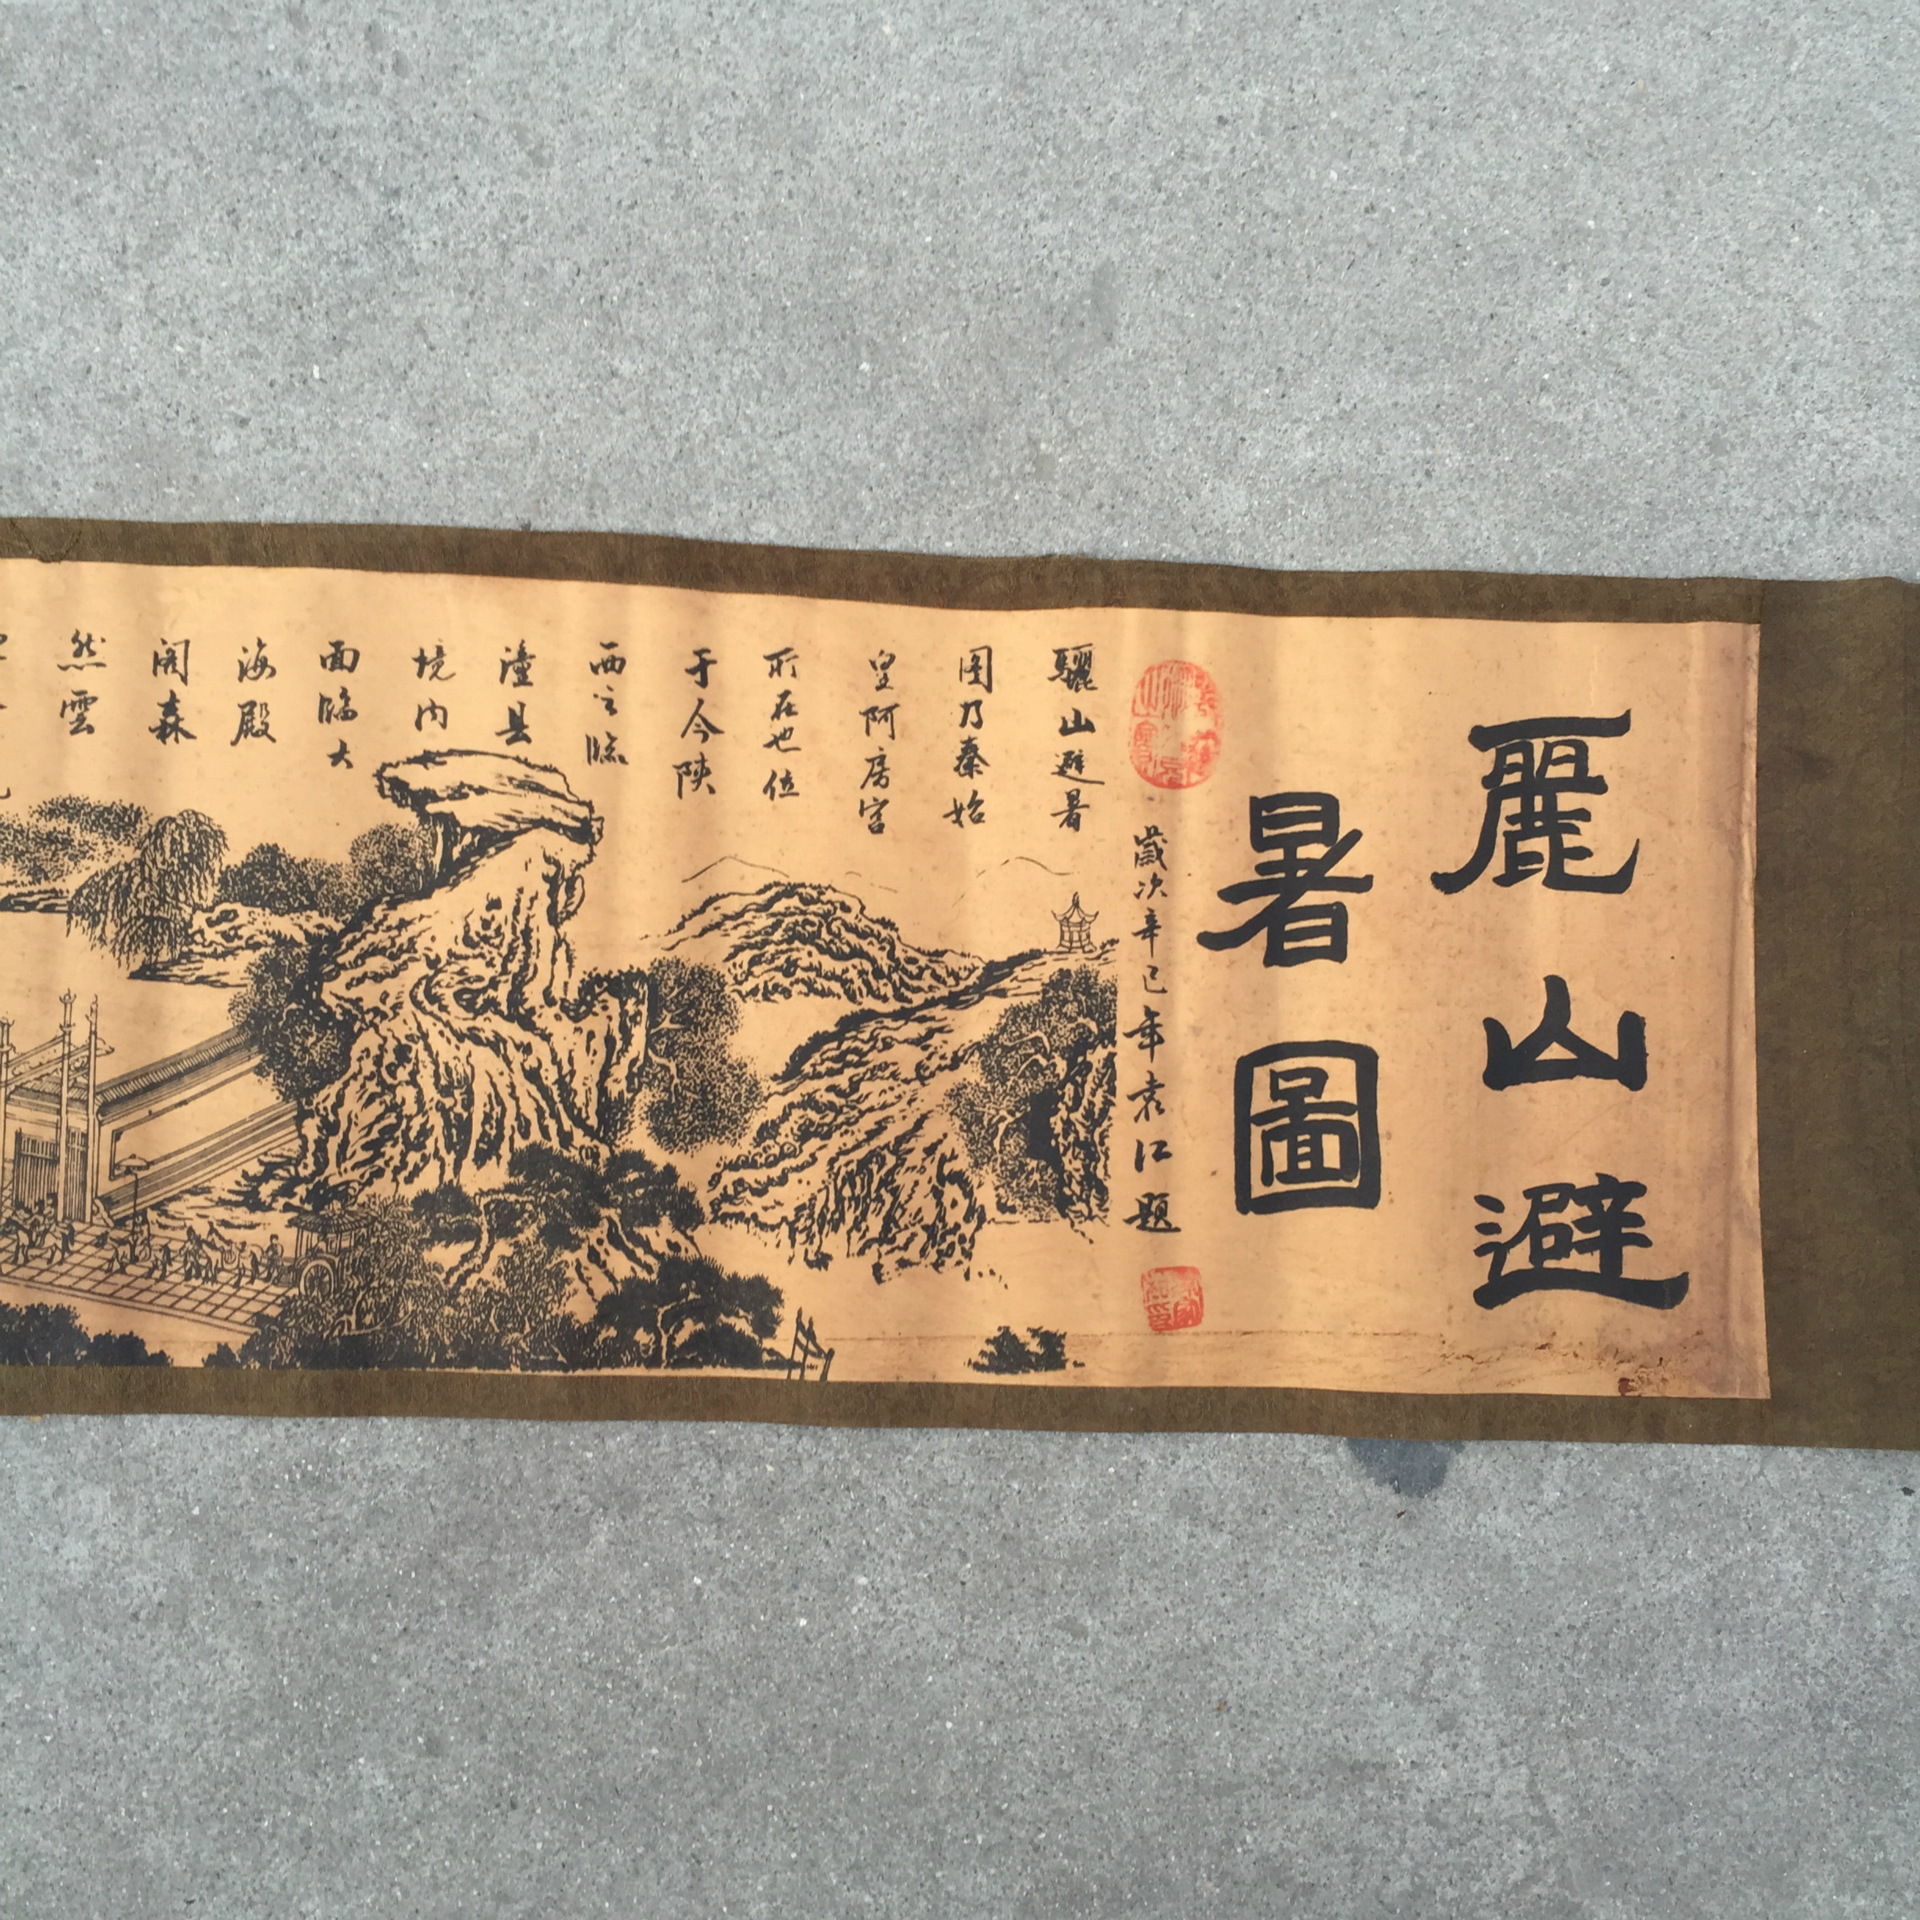 麗山避
暑圖
歲次辛巳年袁江題
驪山避暑
图乃秦始
皇阿房宫
所在也位
于今陕
西之临
潼县
境内
面临大
海殿
阁森
然雲